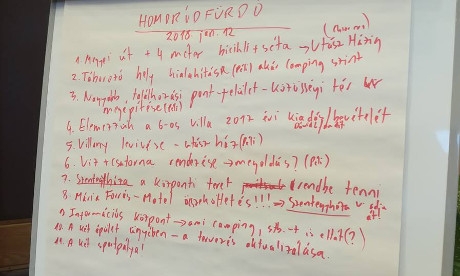 HOMORÓDFÜRDŐ
2018 jan. 12
1. Megyei út + 4 méter bicikli + séta → Utász Házig
2. Táborozó hely kialakítása (Piti) akár camping szint
3. Nagyobb találkozási pont-felület - közösségi tér
megépítése (Piti)
4. Elemezzük a 6-os villa 2017 évi kiadás/bevételét
5. Villany levivése - utász ház (Piti)
6. Víz + csatorna rendezése → megoldás? (Piti)
7. Szentegyháza a központi teret rendbe tenni
8. Mária Forrás - Motel !!! → Szentegyháza adja
át!
9. Információs központ → ami camping, stb. → is ellát (?)
10. A két épület ügyében - a tervezés aktualizálása.
11. A két sportpálya!